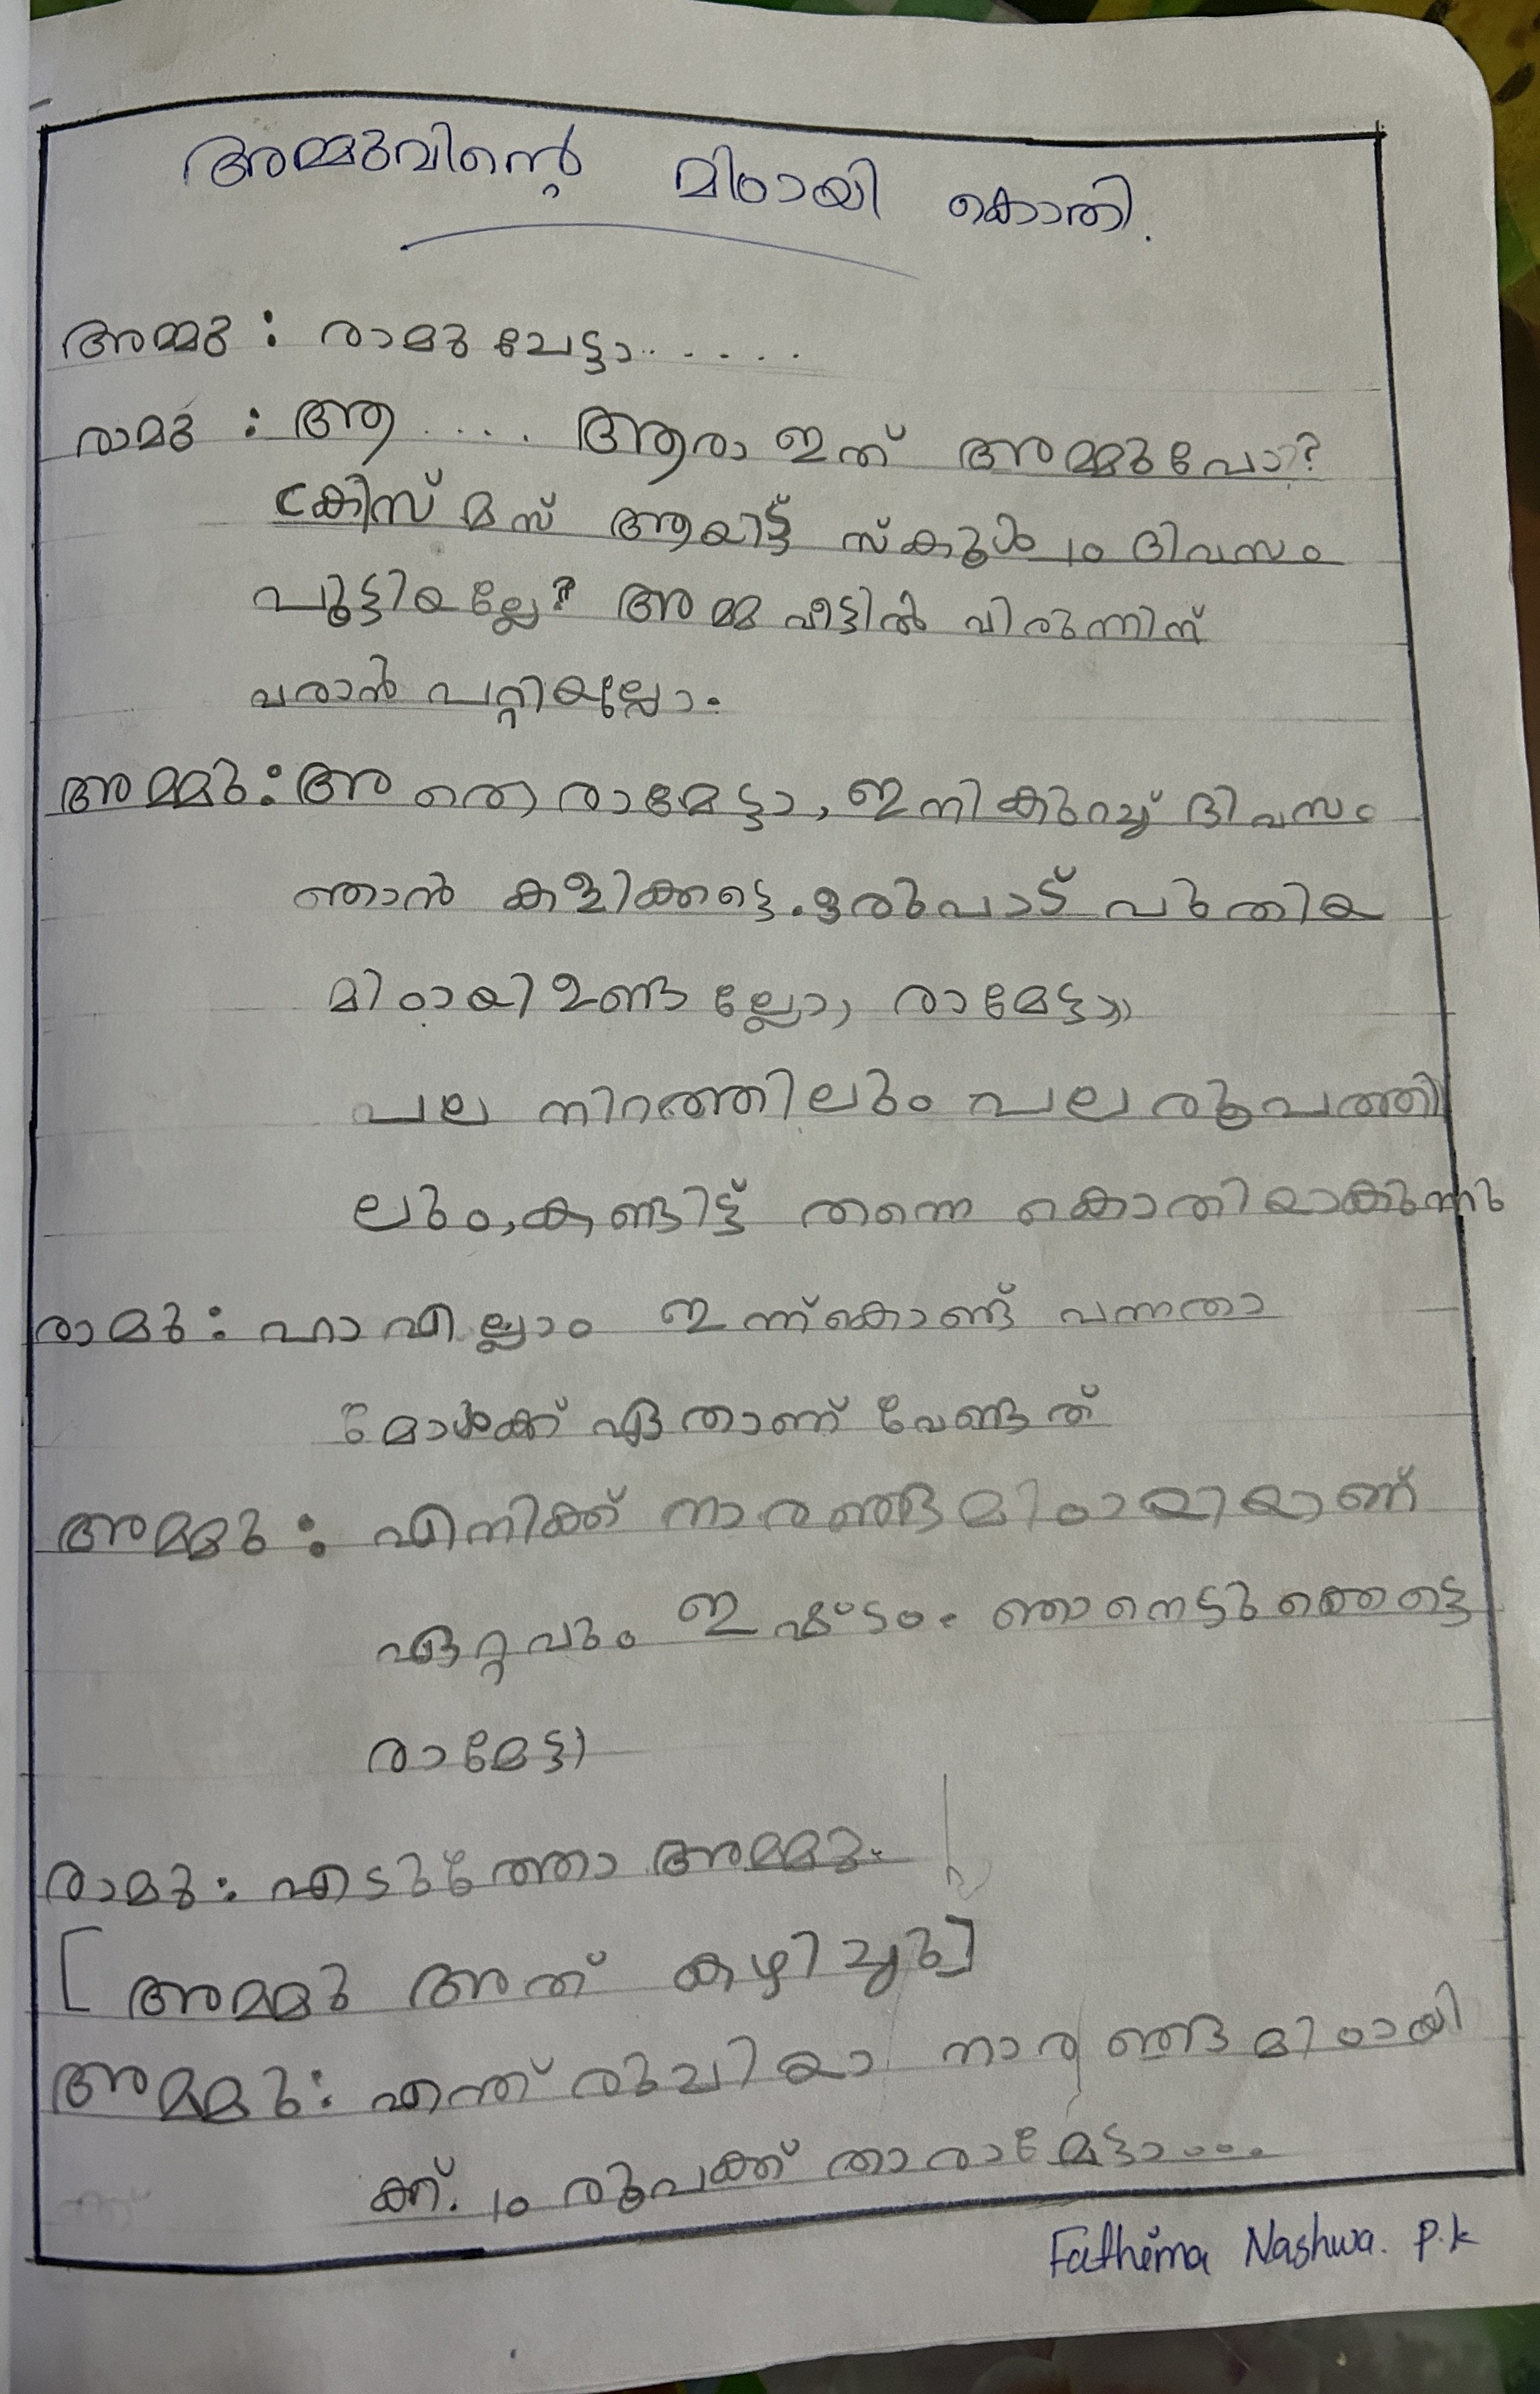 അമ്മുവിന്റെ മിഠായി കൊതി.
അമ്മു : രാമു ചേട്ടാ.......
രാമു : ആ ..... ആരാ ഇത് അമ്മുവോ?
ക്രിസ്മസ് ആയിട്ട് സ്കൂൾ 10 ദിവസം
പൂട്ടിയല്ലേ? അമ്മ വീട്ടിൽ വിരുന്നിന്
വരാൻ പറ്റിയല്ലോ.
അമ്മു : അതെ രാമേട്ടാ, ഇനി കുറച്ച് ദിവസം
ഞാൻ കളിക്കട്ടെ. ഒരുപാട് പുതിയ
മിഠായി ഉണ്ടല്ലോ, രാമേട്ടാ,,
പല നിറത്തിലും പല രൂപത്തി
ലും, കണ്ടിട്ട് തന്നെ കൊതിയാകുന്നു
രാമു : ഹാ എല്ലാം ഇന്ന് കൊണ്ട് വന്നതാ
മോൾക്ക് ഏതാണ് വേണ്ടത്
അമ്മു : എനിക്ക് നാരങ്ങമിഠായിയാണ്
ഏറ്റവും ഇഷ്ടം. ഞാനെടുത്തെട്ടെ
രാമേട്ടാ
രാമു : എടുത്തോ അമ്മു.
[ അമ്മു അത് കഴിച്ചു ]
അമ്മു : എന്ത് രുചിയാ നാരങ്ങമിഠായി
ക്ക്. 10 രൂപക്ക് താ രാമേട്ടാ....
Fathima Nashwa. P.k